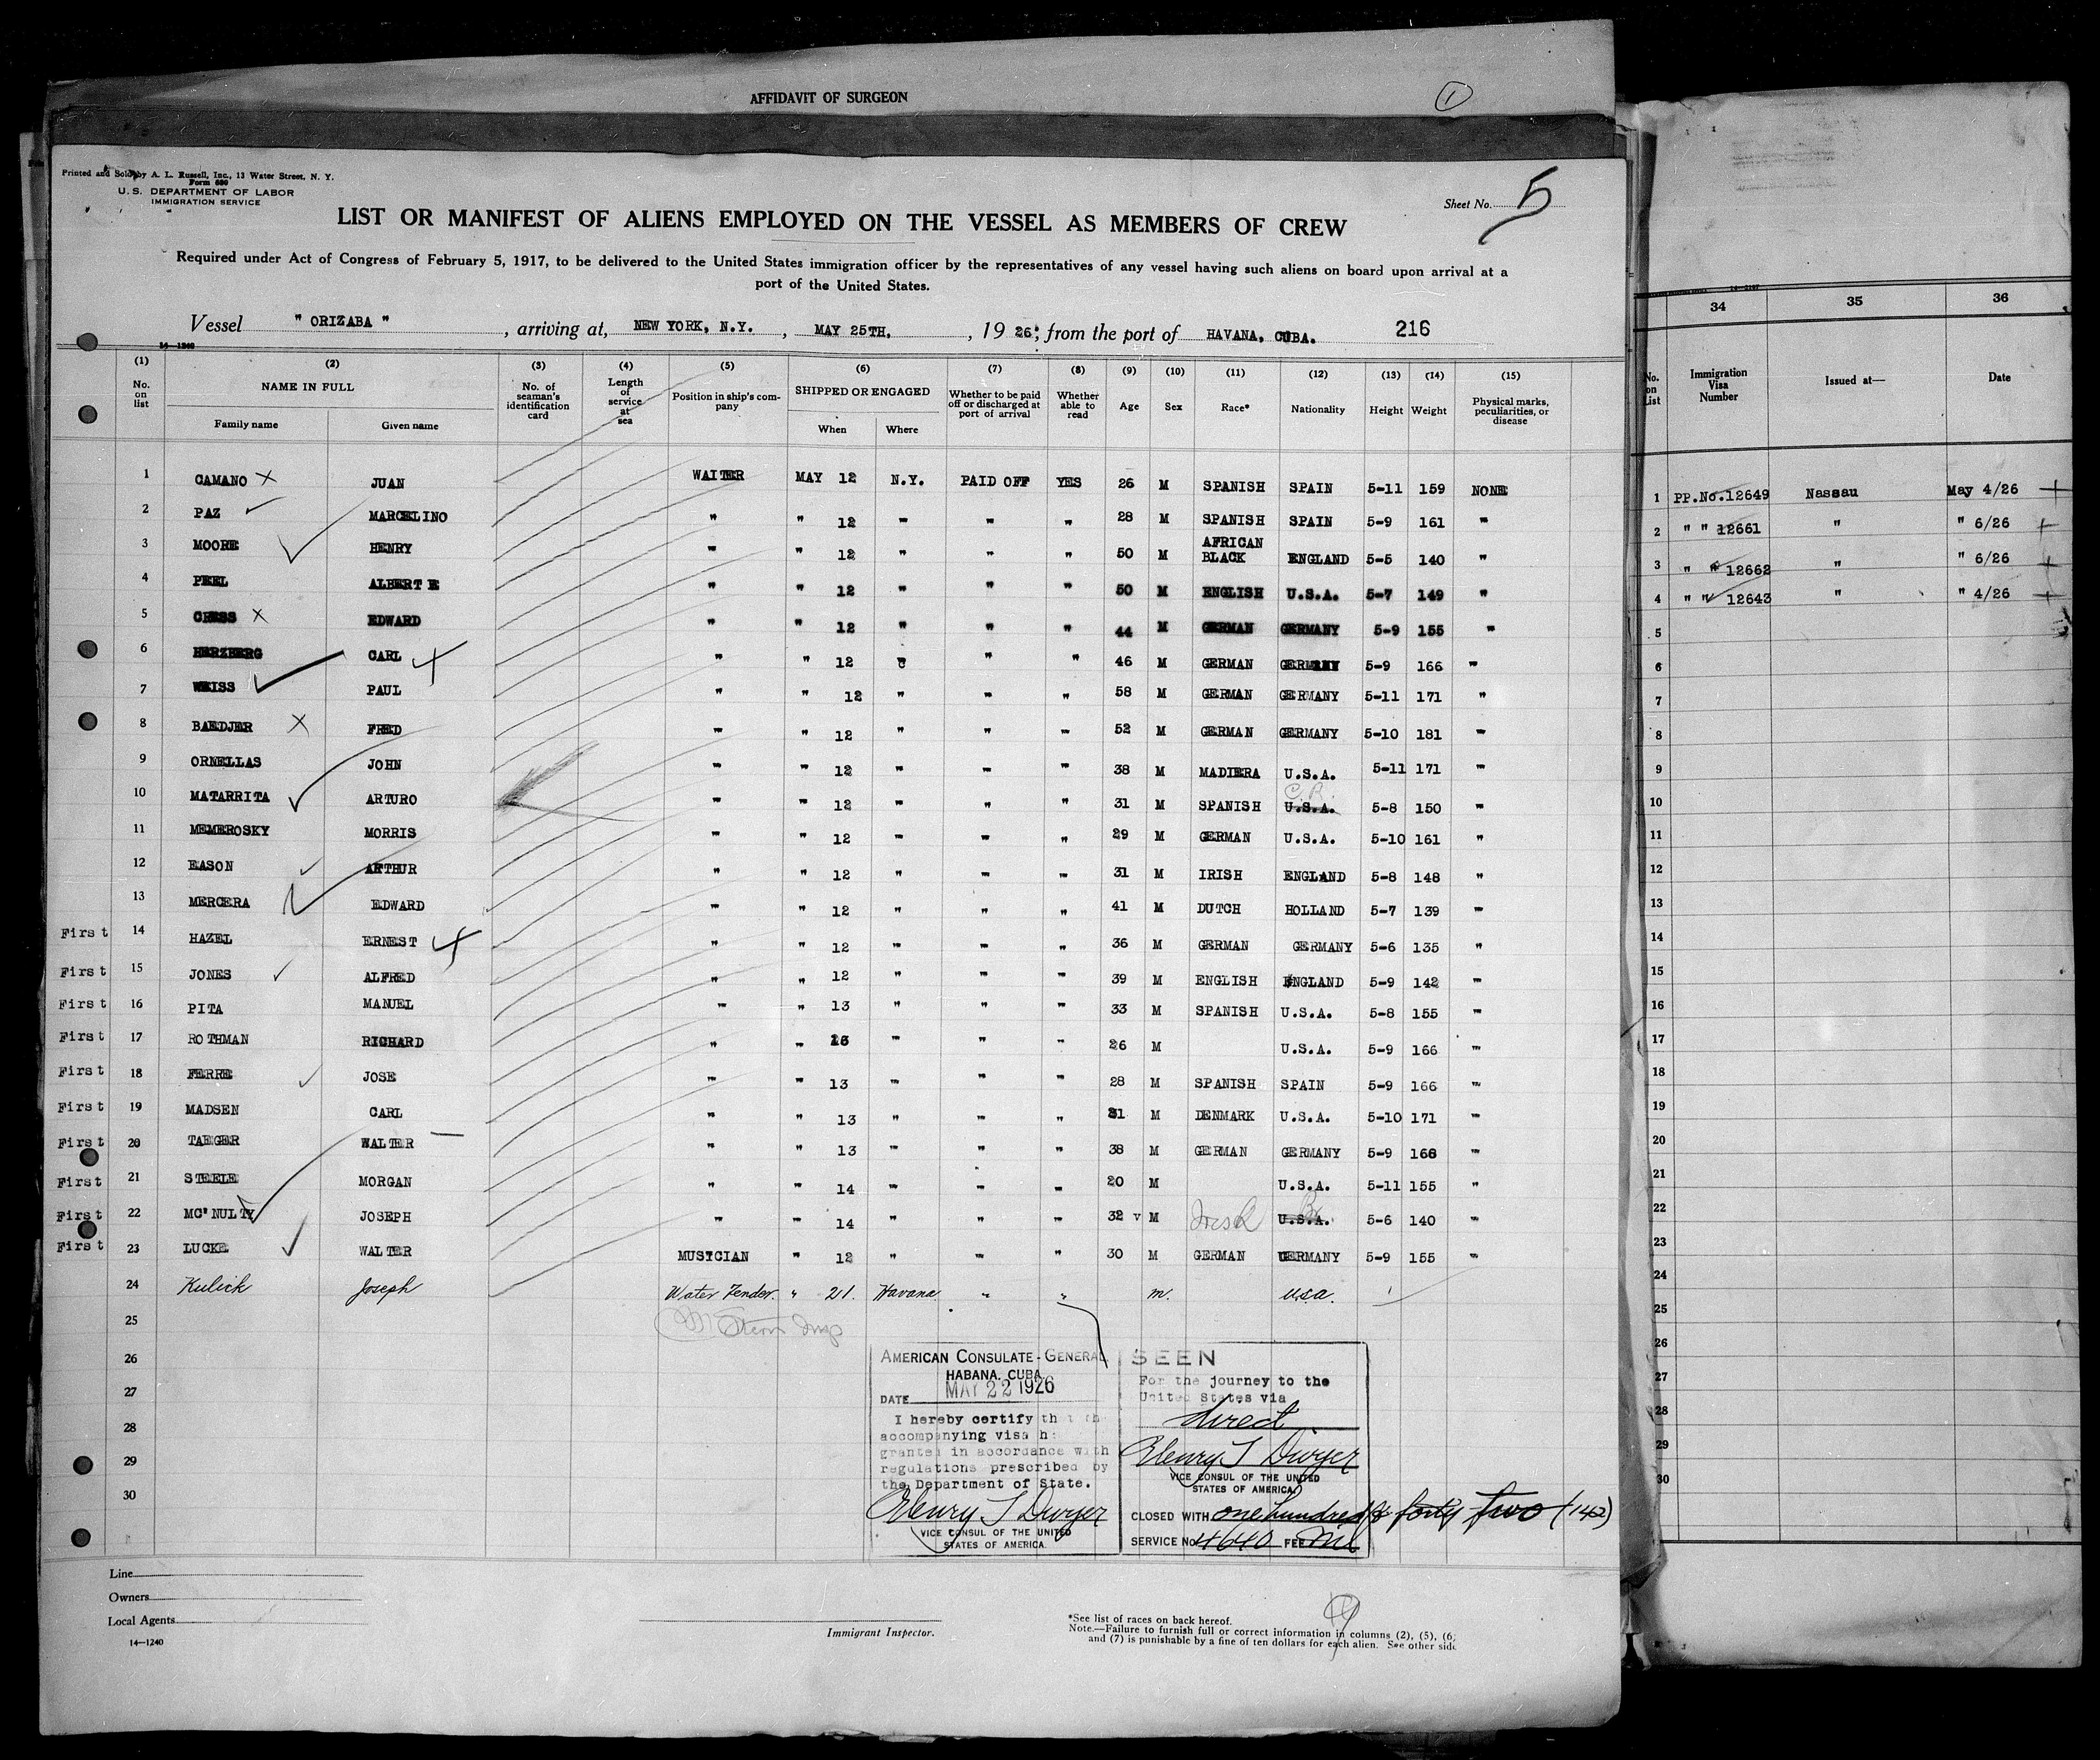 AFFIDAVIT OF SURGEON
1
Printed and Sold by A. L. Russell, Inc., 13 Water Street, N. Y.
Form 680
U. S. DEPARTMENT OF LABOR
IMMIGRATION SERVICE
Sheet No. 5
LIST OR MANIFEST OF ALIENS EMPLOYED ON THE VESSEL AS MEMBERS OF CREW
Required under Act of Congress of February 5, 1917, to be delivered to the United States immigration officer by the representatives of any vessel having such aliens on board upon arrival at a
port of the United States.
Vessel " ORIZABA " , arriving at, NEW YORK, N.Y. , MAY 25TH. , 19 26, from the port of HAVANA, CUBA. 216
14—1240
(1) (2) (3) (4) (5) (6) (7) (8) (9) (10) (11) (12) (13) (14) (15)
No. on list NAME IN FULL Family name Given name No. of seaman's identification card Length of service at sea Position in ship's company SHIPPED OR ENGAGED When Where Whether to be paid off or discharged at port of arrival Whether able to read Age Sex Race* Nationality Height Weight Physical marks, peculiarities, or disease
1 CAMANO JUAN WAITER MAY 12 N.Y. PAID OFF YES 26 M SPANISH SPAIN 5-11 159 NONE
2 PAZ MARCELINO " " 12 " " " 28 M SPANISH SPAIN 5-9 161 "
3 MOORE HENRY " " 12 " " " 50 M AFRICAN BLACK ENGLAND 5-5 140 "
4 PEEL ALBERT E " " 12 " " " 50 M ENGLISH U.S.A. 5-7 149 "
5 CRESS EDWARD " " 12 " " " 44 M GERMAN GERMANY 5-9 155 "
6 HERZBERG CARL " " 12 " " " 46 M GERMAN GERMANY 5-9 166 "
7 WEISS PAUL " " 12 " " " 58 M GERMAN GERMANY 5-11 171 "
8 BAEDJER FRED " " 12 " " " 52 M GERMAN GERMANY 5-10 181 "
9 ORNELLAS JOHN " " 12 " " " 38 M MADIERA U.S.A. 5-11 171 "
10 MATARRITA ARTURO " " 12 " " " 31 M SPANISH U.S.A. C.R. 5-8 150 "
11 MEMEROSKY MORRIS " " 12 " " " 29 M GERMAN U.S.A. 5-10 161 "
12 EASON ARTHUR " " 12 " " " 31 M IRISH ENGLAND 5-8 148 "
13 MERCERA EDWARD " " 12 " " " 41 M DUTCH HOLLAND 5-7 139 "
First 14 HAZEL ERNEST " " 12 " " " 36 M GERMAN GERMANY 5-6 135 "
First 15 JONES ALFRED " " 12 " " " 39 M ENGLISH ENGLAND 5-9 142 "
First 16 PITA MANUEL " " 13 " " " 33 M SPANISH U.S.A. 5-8 155 "
First 17 ROTHMAN RICHARD " " " " " 26 M U.S.A. 5-9 166 "
First 18 FERRE JOSE " " 13 " " " 28 M SPANISH SPAIN 5-9 166 "
First 19 MADSEN CARL " " 13 " " " 31 M DENMARK U.S.A. 5-10 171 "
First 20 TAEGER WALTER " " 13 " " " 38 M GERMAN GERMANY 5-9 168 "
First 21 STEELE MORGAN " " 14 " " " 20 M U.S.A. 5-11 155 "
First 22 MC'NULTY JOSEPH " " 14 " " " 32 v M Irish U.S.A. Br. 5-6 140 "
First 23 LUCKE WALTER MUSICIAN " 12 " " " 30 M GERMAN GERMANY 5-9 155 "
24 Kulick Joseph Water Tender. " 21. Havana " " m. usa.
25
26
27
28
29
30
AMERICAN CONSULATE-GENERAL
HABANA, CUBA
DATE MAY 22 1926
I hereby certify that the
accompanying visa h
granted in accordance with
regulations prescribed by
the Department of State.
Henry T Dwyer
VICE CONSUL OF THE UNITED
STATES OF AMERICA.
SEEN
For the journey to the
United States via
direct
Henry T Dwyer
VICE CONSUL OF THE UNITED
STATES OF AMERICA
CLOSED WITH one hundred & forty two (142)
SERVICE No. 4640 FEE Nil
Line
Owners
Local Agents
14—1240
Immigrant Inspector.
*See list of races on back hereof.
Note.—Failure to furnish full or correct information in columns (2), (5), (6)
and (7) is punishable by a fine of ten dollars for each alien. See other side
34 35 36
No. on List Immigration Visa Number Issued at— Date
1 PP.No.12649 Nassau May 4/26
2 " " 12661 " " 6/26
3 " " 12662 " " 6/26
4 " " 12643 " " 4/26
5
6
7
8
9
10
11
12
13
14
15
16
17
18
19
20
21
22
23
24
25
26
27
28
29
30